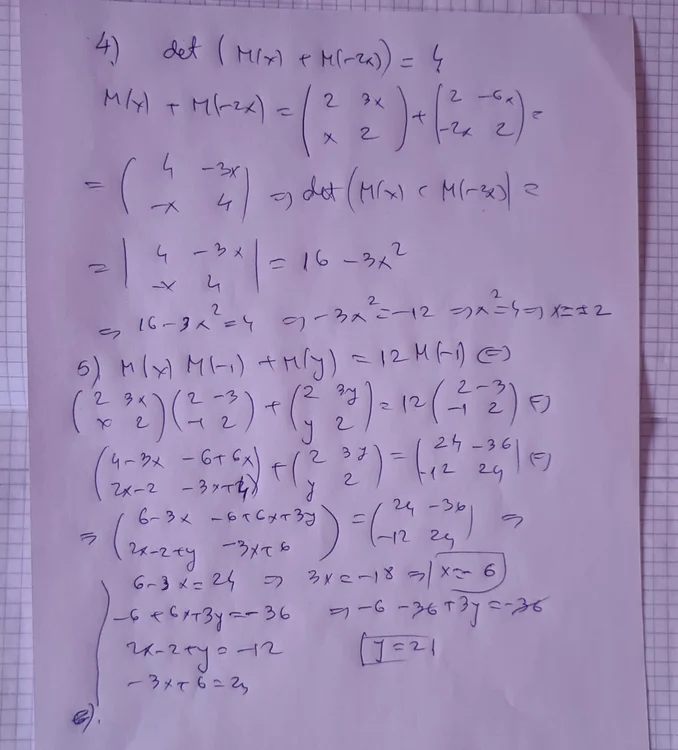 4) det (M(x) + M(-2x)) = 4
M(x) + M(-2x) = ( 2 3x ; x 2 ) + ( 2 -6x ; -2x 2 ) =
= ( 4 -3x ; -x 4 ) => det (M(x) + M(-2x)) =
= | 4 -3x ; -x 4 | = 16 - 3x²
=> 16 - 3x² = 4 => -3x² = -12 => x² = 4 => x = ±2
5) M(x) M(-1) + M(y) = 12 M(-1) (=)
( 2 3x ; x 2 ) ( 2 -3 ; -1 2 ) + ( 2 3y ; y 2 ) = 12 ( 2 -3 ; -1 2 ) (=)
( 4-3x -6+6x ; 2x-2 -3x+4 ) + ( 2 3y ; y 2 ) = ( 24 -36 ; -12 24 ) (=)
=> ( 6-3x -6+6x+3y ; 2x-2+y -3x+6 ) = ( 24 -36 ; -12 24 ) =>
6-3x = 24 => 3x = -18 => x = -6
-6+6x+3y = -36 => -6 -36+3y = -36
2x-2+y = -12 y = 2
-3x+6 = 24